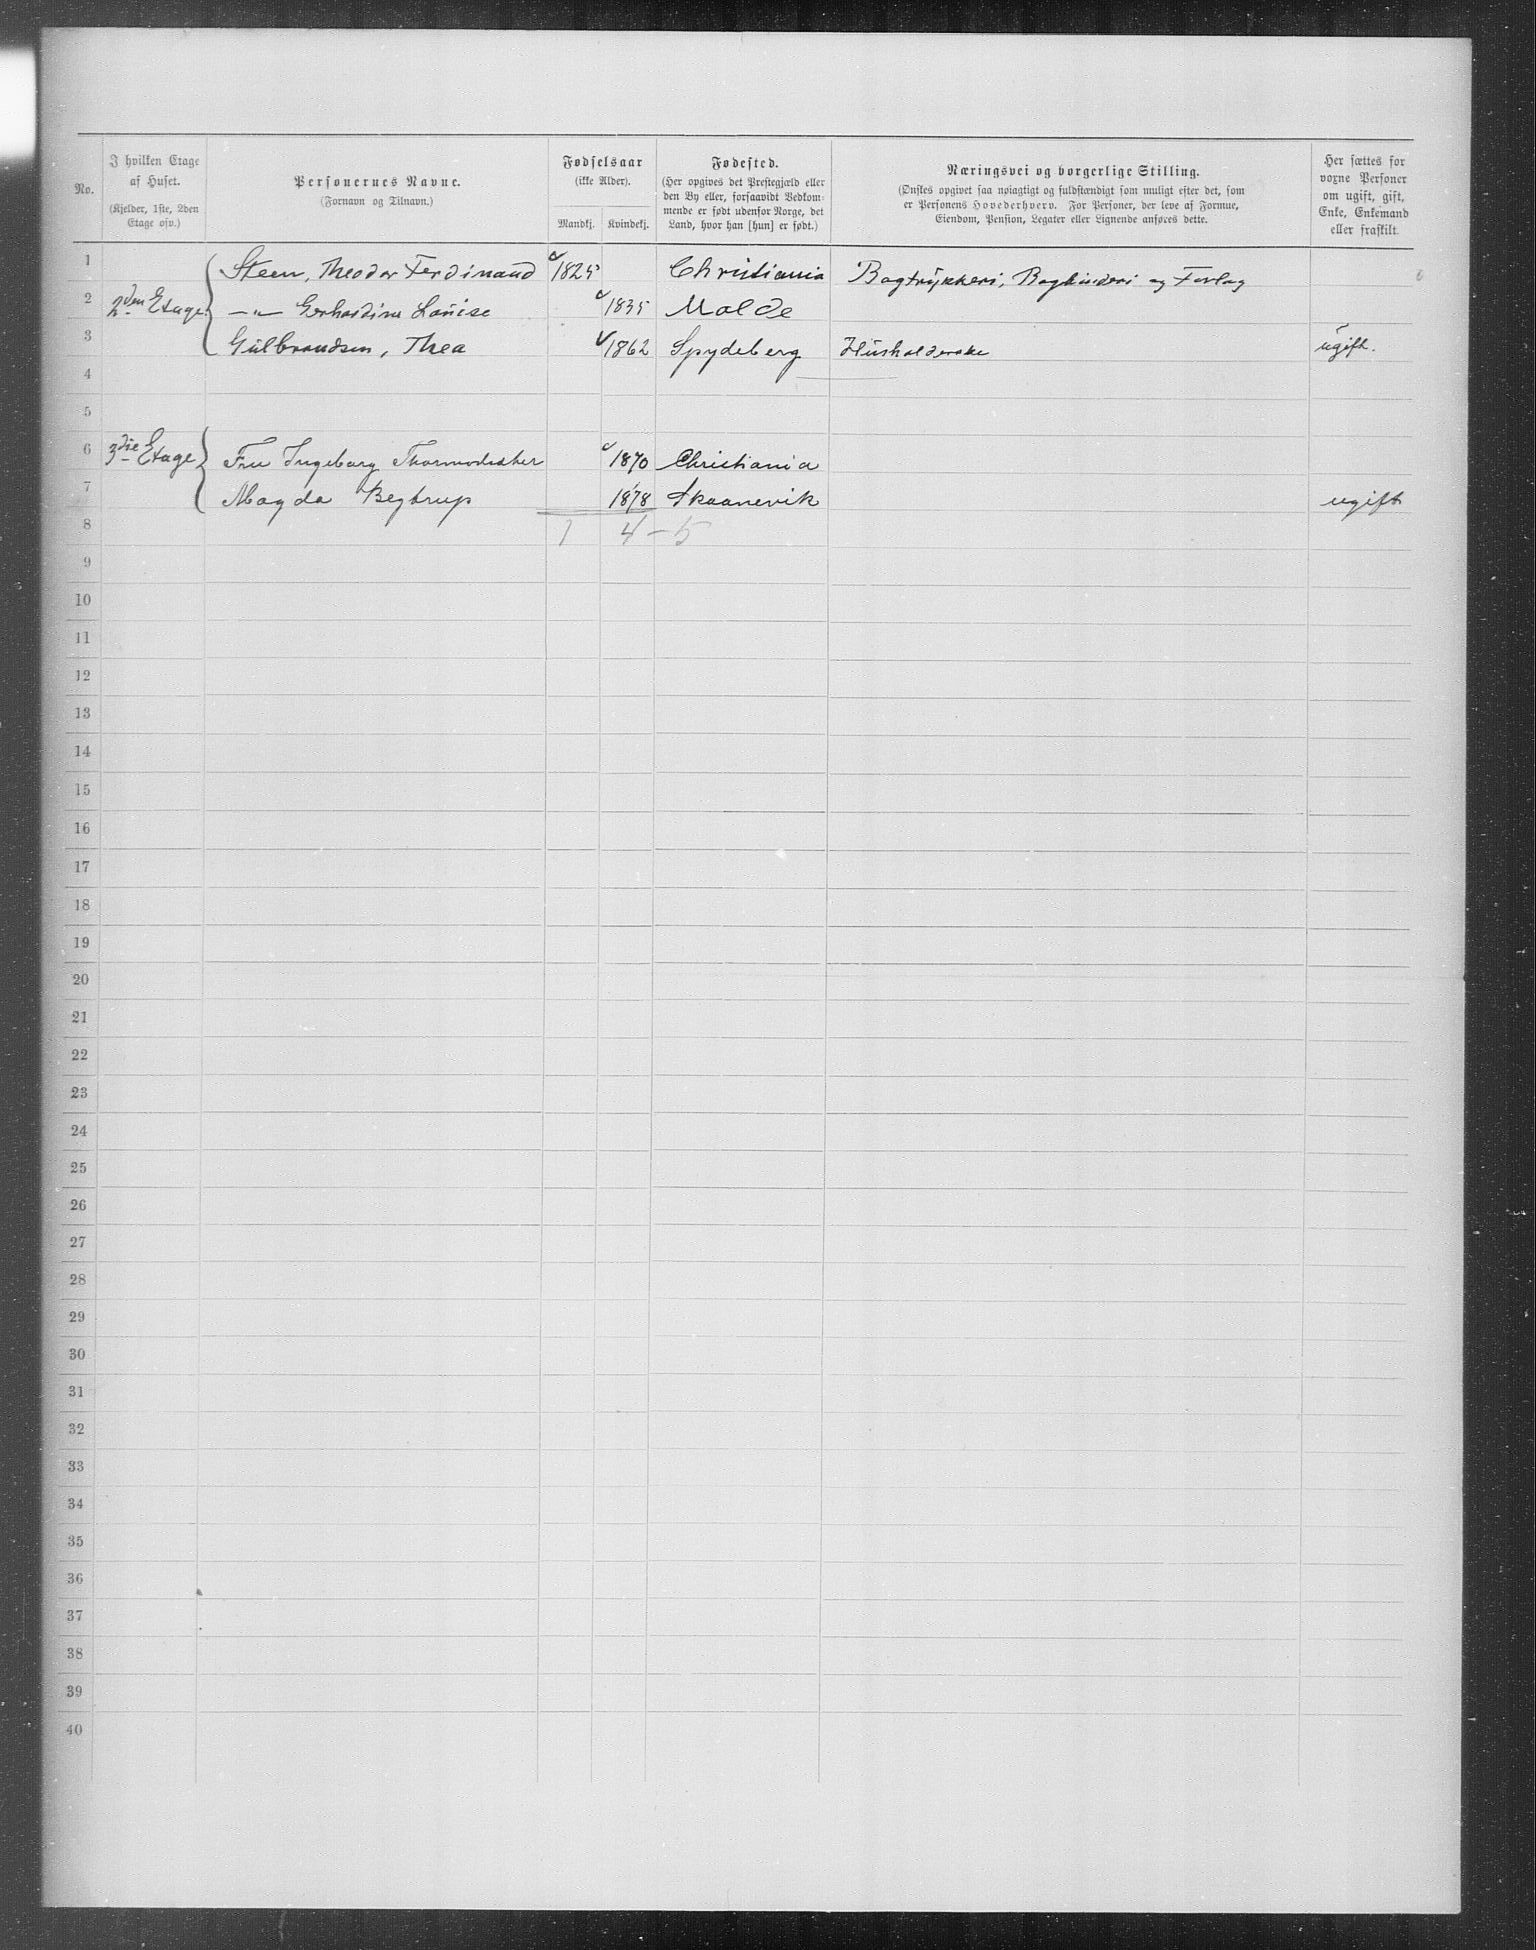 No.
I hvilken Etage
af Huset.
(Kjelder, 1ste, 2den
Etage osv.)
Personernes Navne.
(Fornavn og Tilnavn.)
Fødselsaar
(ikke Alder).
Mandkj. Kvindekj.
Fødested.
(Her opgives det Prestegjæld eller
den By eller, forsaavidt Vedkom-
mende er født udenfor Norge, det
Land, hvor han [hun] er født.)
Næringsvei og borgerlige Stilling.
(Ønskes opgivet saa nøiagtigt og fuldstændigt som muligt efter det, som
er Personens Hovederhverv. For Personer, der leve af Formue,
Eiendom, Pension, Legater eller Lignende anføres dette.
Her sættes for
voxne Personer
om ugift, gift,
Enke, Enkemand
eller fraskilt.
1 Steen, Theodor Ferdinand 1825 Christiania Bogtrykkeri, Bogbinderi og Forlag
2 2den Etage -"- Gerhardine Louise 1835 Molde
3 Gulbrandsen, Thea 1862 Spydeberg Husholderske ugift.
4
5
6 3die Etage Fru Ingeborg 1870 Christiania
7 Magda Begtrup 1878 Skaanevik ugift
8 1 4 – 5
9
10
11
12
13
14
15
16
17
18
19
20
21
22
23
24
25
26
27
28
29
30
31
32
33
34
35
36
37
38
39
40